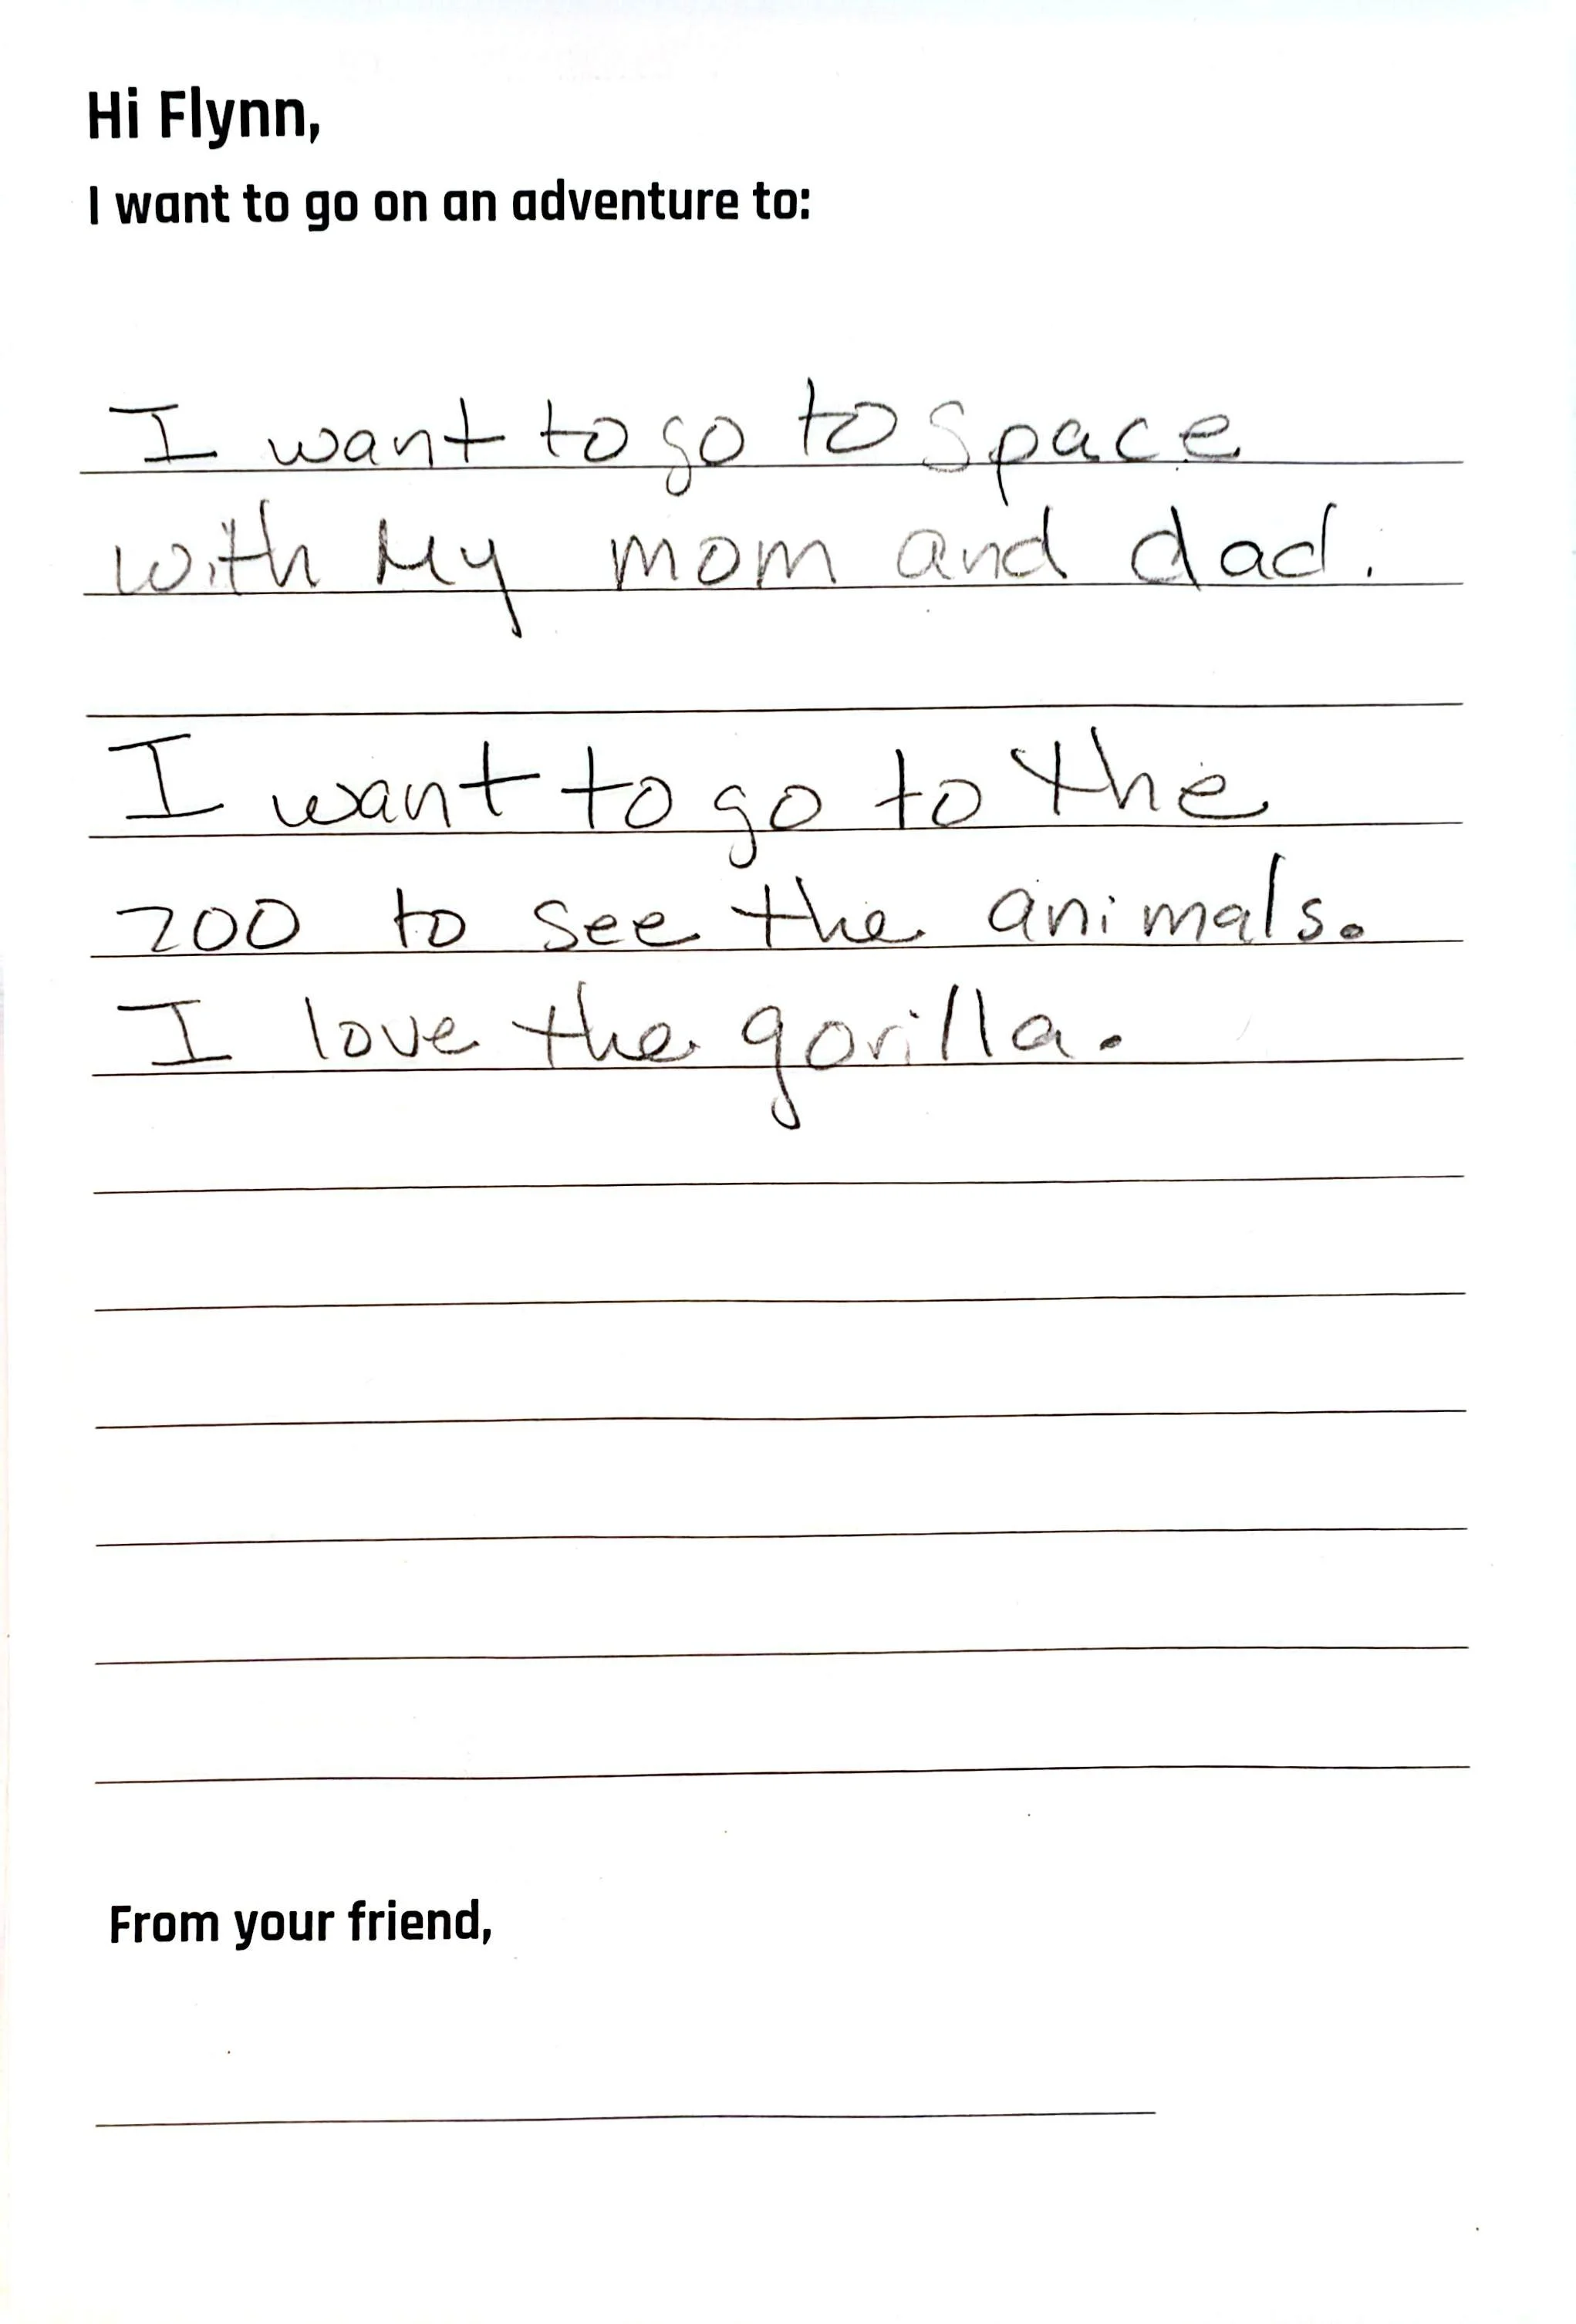 Hi Flynn,
I want to go on an adventure to:
I want to go to space
with My mom and dad.
I want to go to the
zoo to see the animals.
I love the gorilla.
From your friend,